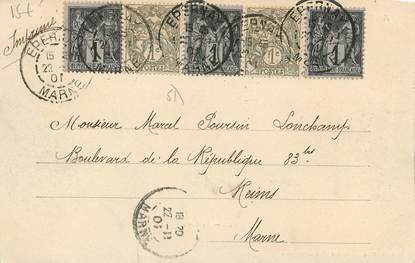 15f
Imprimé
EPERNAY
EPERNAY
1
1
1
EPERNAY
15
22
01
MARNE
51
Monsieur Marcel Poursin Lonchamp
Boulevard de la République 83 bis
Reims
Marne
18 20
22-11
01
MARNE